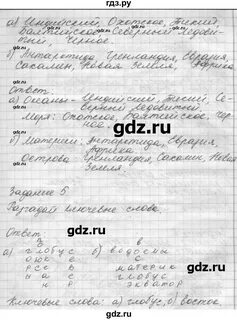 gdz.ru
а) Индийский, Охотское, Тихий,
Балтийское, Северный Ледови-
тый, Черное.
б) Антарктида, Гренландия, Евразия,
Сахалин, Новая Земля, Африка
Ответ:
а) Океаны - Индийский, Тихий, Се-
верный Ледовитый
Моря: Охотское, Балтийское, Чер-
ное.
б) Материки: Антарктида, Евразия,
Африка
Острова Гренландия, Сахалин, Новая
Земля.
Задание 5
Разгадай ключевые слова.
Ответ:
а) глобус б) водоемы
материк
экватор
Ключевые слова: а) глобус, б) восток.
gdz.ru
gdz.ru
gdz.ru
gdz.ru